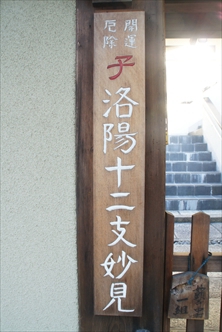 開運
厄除
子
洛陽十二支妙見